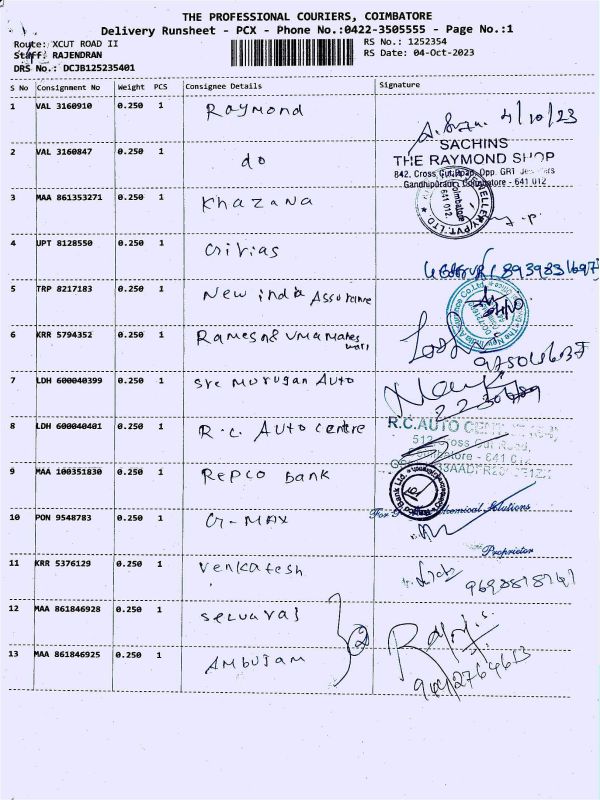 THE PROFESSIONAL COURIERS, COIMBATORE
Delivery Runsheet - PCX - Phone No.:0422-3505555 - Page No.:1
Route: XCUT ROAD II
RS No.: 1252354
Staff: RAJENDRAN
RS Date: 04-Oct-2023
DRS No.: DCJB125235401
S No Consignment No Weight PCS Consignee Details Signature
1 VAL 3160910 0.250 1 Raymond
4/10/23
SACHINS
2 VAL 3160847 0.250 1 do
THE RAYMOND SHOP
842, Cross Cut Road, Opp. GRT Jewellers
Gandhipuram, Coimbatore - 641 012
3 MAA 861353271 0.250 1 Khazana
Coimbatore
641 012
4 UPT 8128550 0.250 1
5 TRP 8217183 0.250 1 New india Assurance
6 KRR 5794352 0.250 1 Ramesh & umamahes
wari
7 LDH 600040399 0.250 1 Sre murugan Auto
8 LDH 600040401 0.250 1 R.c. Auto centre
R.C.AUTO
Cross Cut Road,
Coimbatore - 641 012
9 MAA 100351830 0.250 1 Repco bank
10 PON 9548783 0.250 1 G-MAX
For Chemical Solutions
Proprietor
11 KRR 5376129 0.250 1 venkatesh
12 MAA 861846928 0.250 1 selvaraj
2
13 MAA 861846925 0.250 1 Ambujam